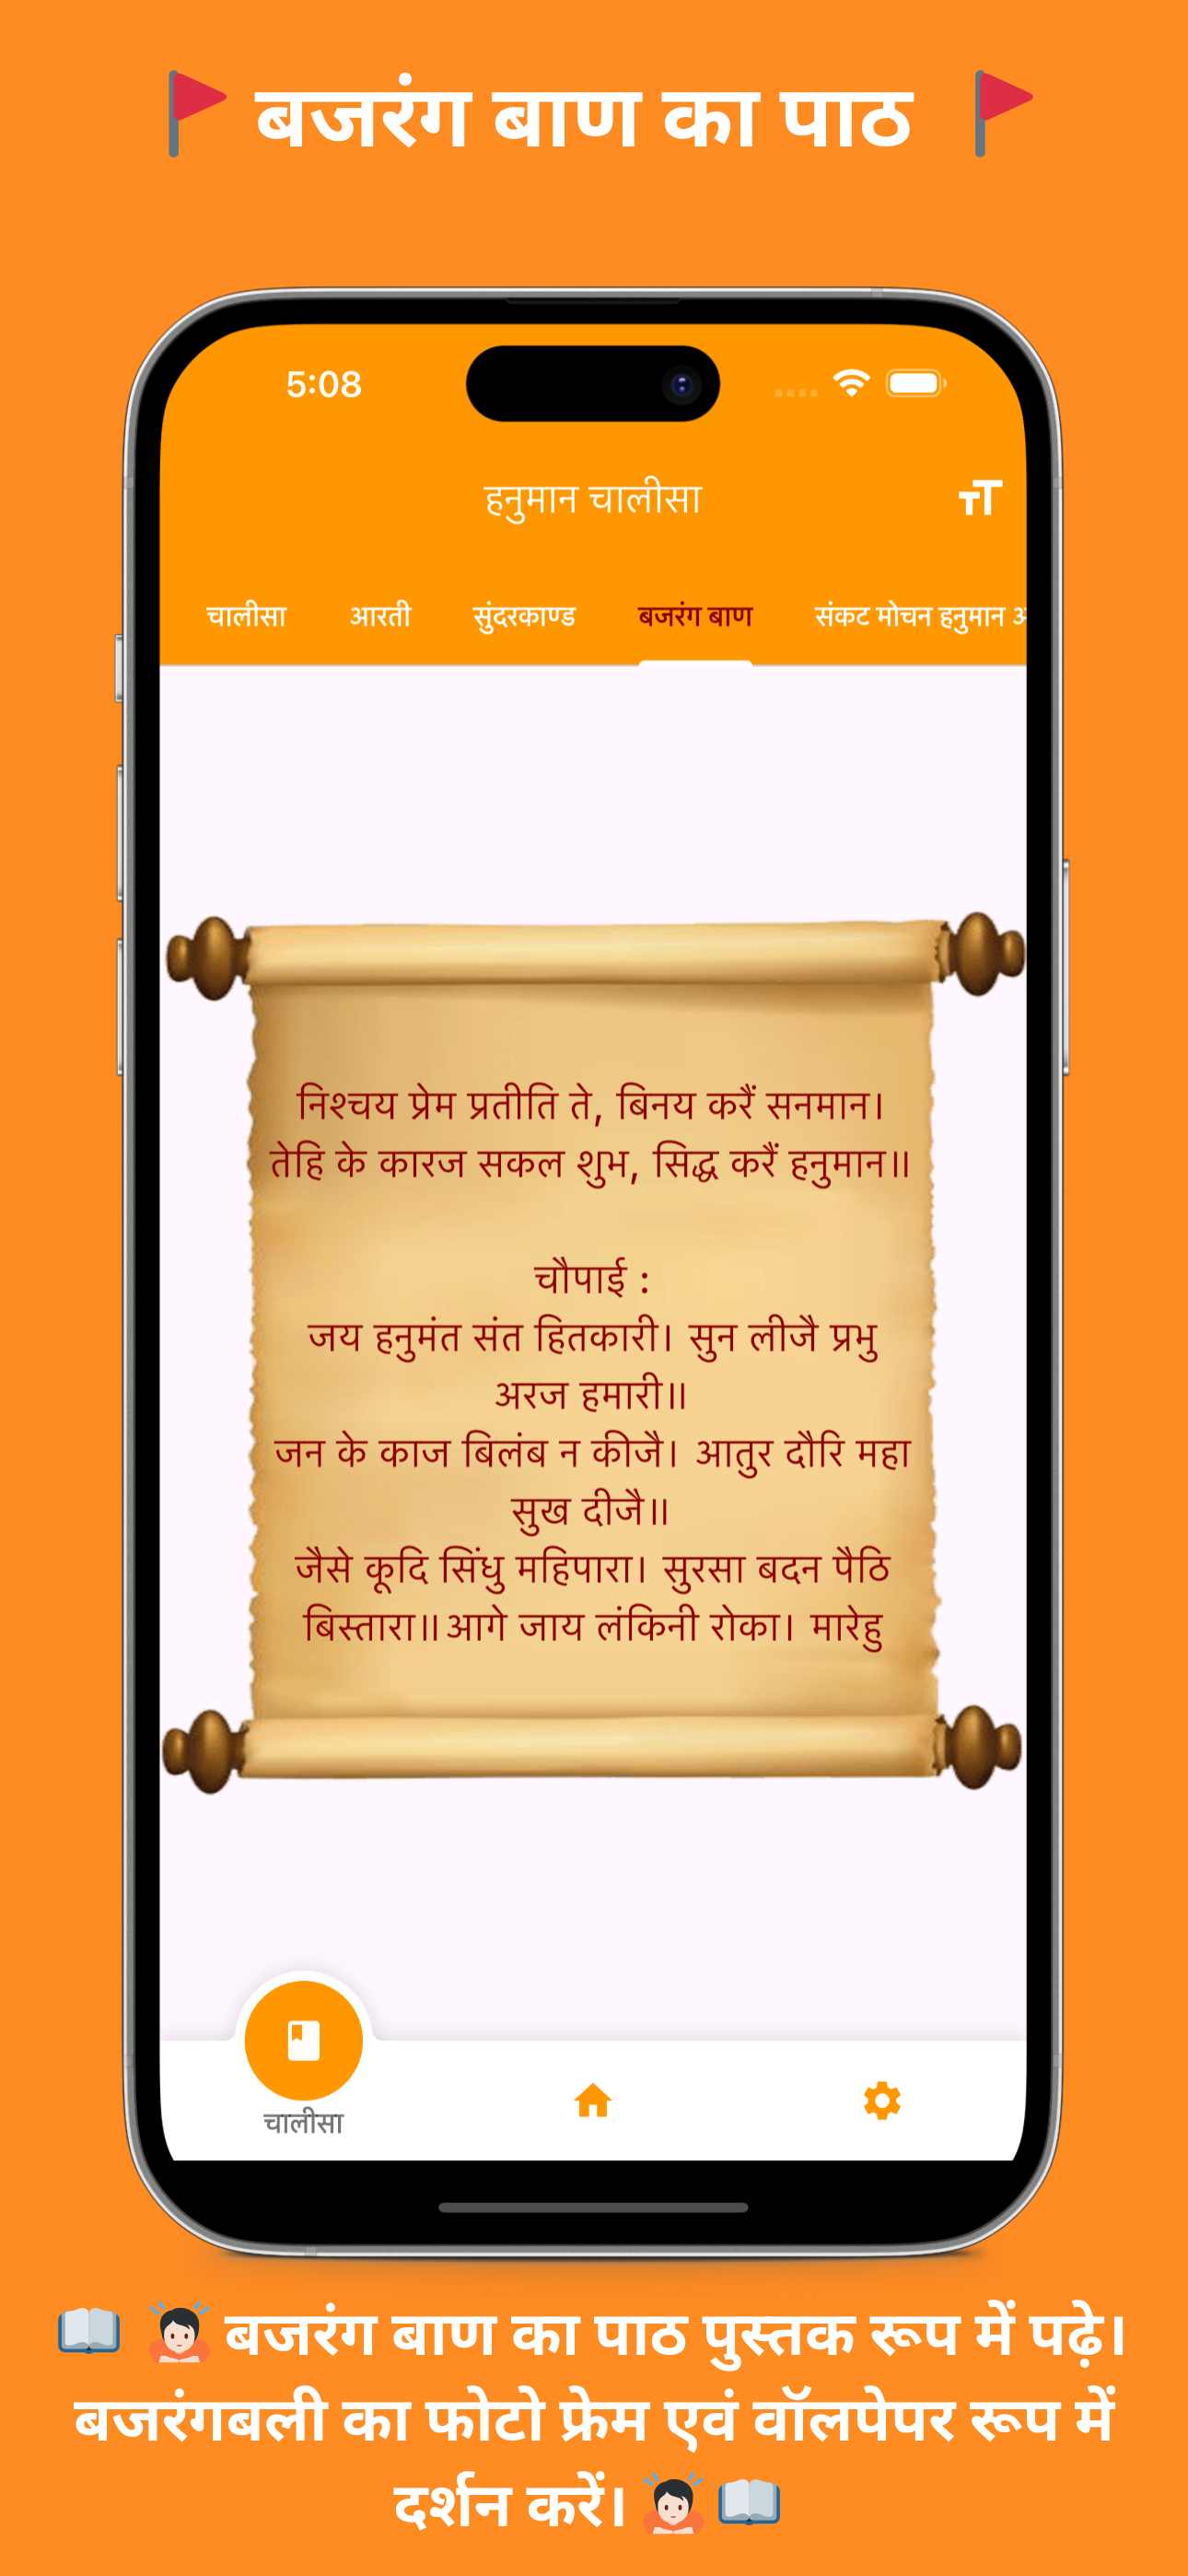 बजरंग बाण का पाठ
5:08
हनुमान चालीसा
चालीसा आरती सुंदरकाण्ड बजरंग बाण संकट मोचन हनुमान
निश्चय प्रेम प्रतीति ते, बिनय करैं सनमान।
तेहि के कारज सकल शुभ, सिद्ध करैं हनुमान॥
चौपाई :
जय हनुमंत संत हितकारी। सुन लीजै प्रभु
अरज हमारी॥
जन के काज बिलंब न कीजै। आतुर दौरि महा
सुख दीजै॥
जैसे कूदि सिंधु महिपारा। सुरसा बदन पैठि
बिस्तारा॥आगे जाय लंकिनी रोका। मारेहु
चालीसा
बजरंग बाण का पाठ पुस्तक रूप में पढ़े।
बजरंगबली का फोटो फ्रेम एवं वॉलपेपर रूप में
दर्शन करें।